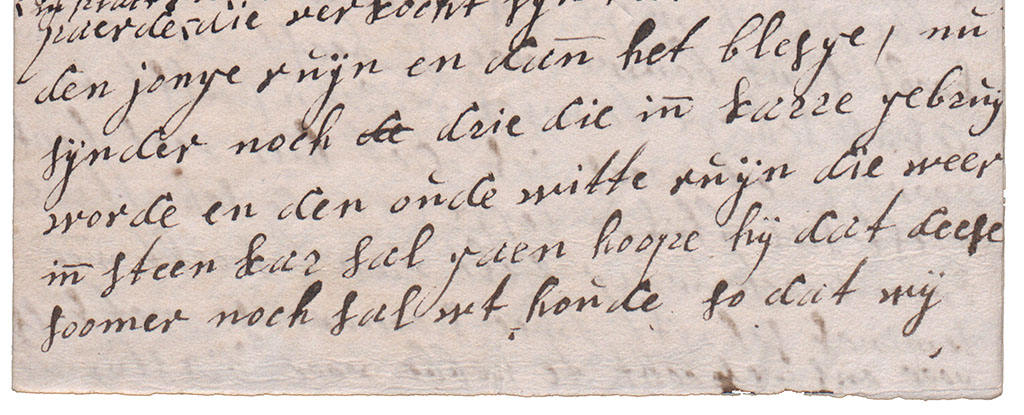 paerde, die verkocht syn
den jonge ruÿn en dan̄ het blesge, nu
sÿnder noch de drie die in̄ karre gebruÿ
worde en den oude witte ruÿn die weer
in̄ steen kar sal gaen hoope hÿ dat deese
soomer noch sal wt houde so dat wÿ